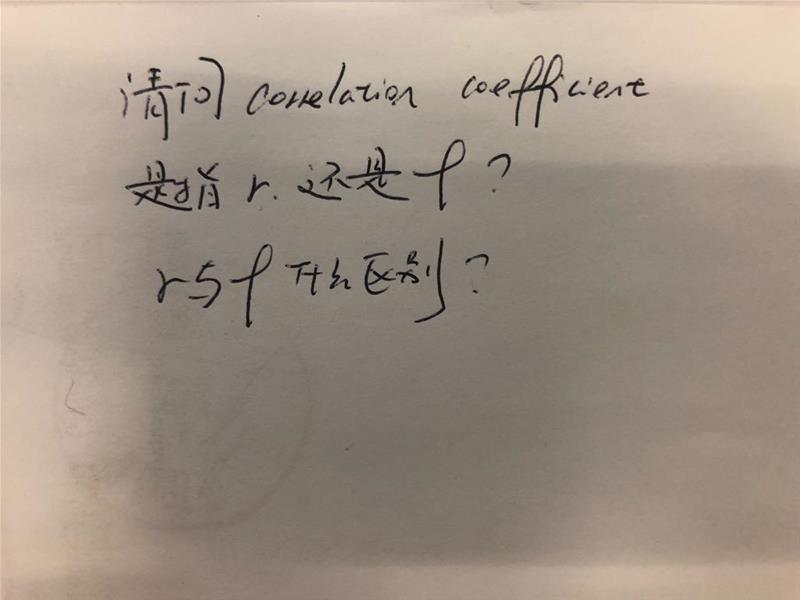 请问 correlation coefficient
是指 r. 还是 ρ?
r与ρ 什么区别?